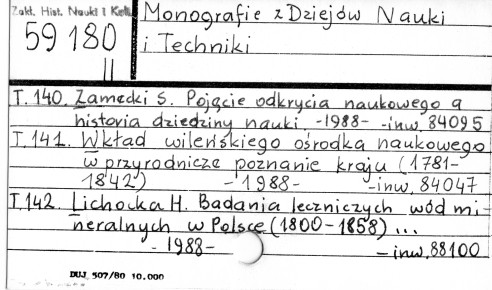 Zakł. Hist. Nauki i Kult.
59180
II
Monografie z Dziejów Nauki
i Techniki
T. 140. Zamecki S. Pojęcie odkrycia naukowego a
historia dziedziny nauki. -1988- -inw. 84095
T. 141. Wkład wileńskiego ośrodka naukowego
w przyrodnicze poznanie kraju (1781-
1842) -1988- -inw. 84047
T. 142. Lichocka H. Badania leczniczych wód mi-
neralnych w Polsce (1800-1858) ...
-1988- -inw. 88100
DUJ 507/80 10.000